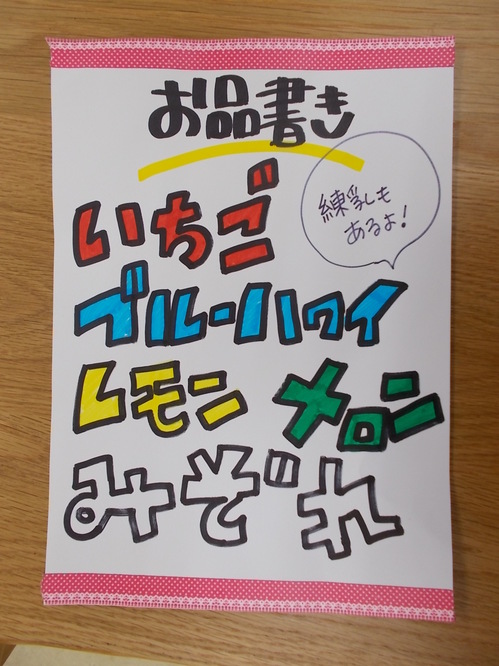 お品書き
練乳も
あるよ!
いちご
ブルーハワイ
レモン メロン
みぞれ